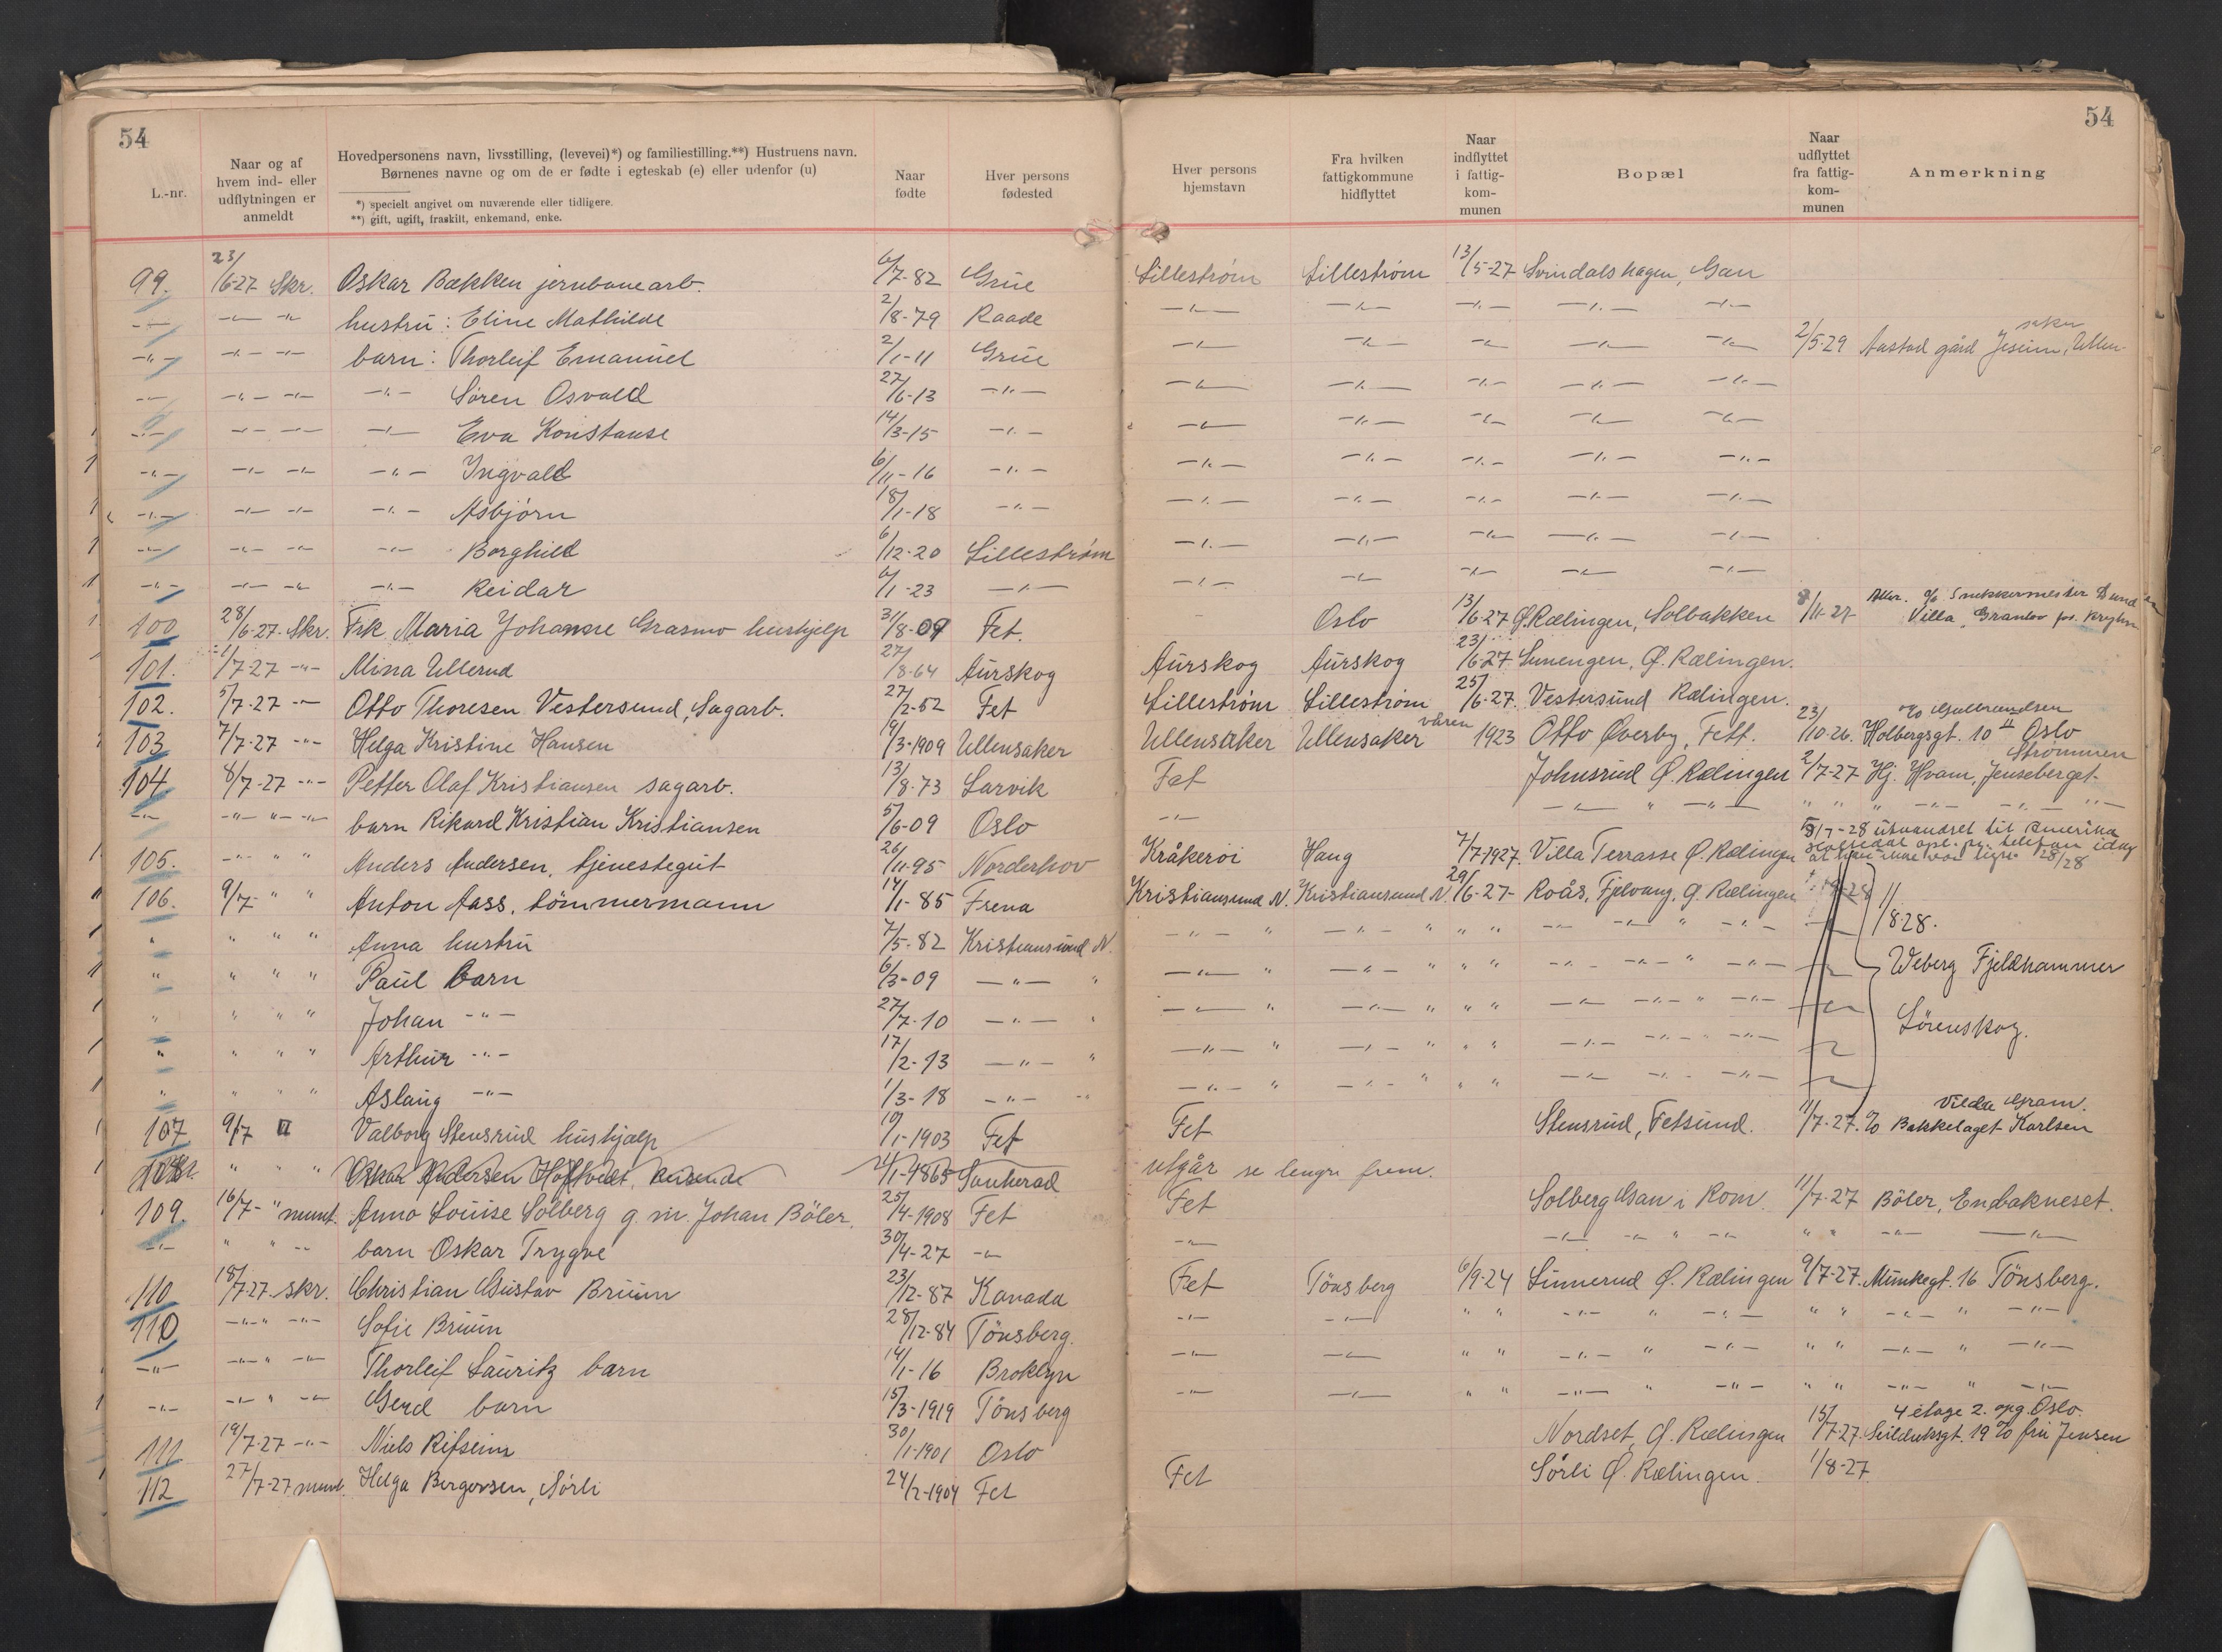 54
54
L.-nr.
Naar og af hvem ind- eller udflytningen er anmeldt
Hovedpersonens navn, livsstilling, (levevei)*) og familiestilling.**) Hustruens navn.
Børnenes navne og om de er fødte i egteskab (e) eller udenfor (u)
*) specielt angivet om nuværende eller tidligere.
**) gift, ugift, fraskilt, enkemand, enke.
Naar fødte
Hver persons fødested
Hver persons hjemstavn
Fra hvilken fattigkommune hidflyttet
Naar indflyttet i fattigkommunen
Bopæl
Naar udflyttet fra fattigkommunen
Anmerkning
99. 23/6-27 Skr. Oskar Bækken jernbanearb. 6/7-82 Grue Lillestrøm Lillestrøm 13/5-27 Svindalshagen, Gan
-"- -"- -"- hustru: Eline Mathilde 2/8-79 Raade -"- -"- -"- -"- -"-
-"- -"- -"- barn: Thorleif Emanuel 2/1-11 Grue -"- -"- -"- -"- -"- 2/5-29 Aastad gård Jeseim, Ullensaker
-"- -"- -"- -"- Søren Osvald 27/6-13 -"- -"- -"- -"- -"- -"-
-"- -"- -"- -"- Eva Konstanse 14/3-15 -"- -"- -"- -"- -"- -"-
-"- -"- -"- -"- Ingvald 6/11-16 -"- -"- -"- -"- -"- -"-
-"- -"- -"- -"- Asbjørn 18/1-18 -"- -"- -"- -"- -"- -"-
-"- -"- -"- -"- Borghild 6/12-20 Lillestrøm -"- -"- -"- -"- -"-
-"- -"- -"- -"- Reidar 6/1-23 -"- -"- -"- -"- -"- -"-
100 28/6-27. Skr. Frk Maria Johanne Grasmo hushjelp 31/8-09 Fet. Oslo 13/6-27 Ø. Rælingen, Solbakken /11-27 c/o Snekkermester Villa, Granlov
101. 1/7-27 -"- Mina Ullerud 27/8-64 Aurskog Aurskog Aurskog 23/6-27 Ø. Rælingen.
102. 5/7-27 -"- Otto Thoresen Vestersund, Sagarb. 27/2-52 Fet Lillestrøm Lillestrøm 25/6-27. Vestersund Rælingen.
103 7/7-27 -"- Helga Kristine Hansen 9/3-1909 Ullensaker Ullensaker Ullensaker våren 1923 Otto Øverby, Fett. 23/10-26. Holbergsgt. 10 II Oslo
104 8/7-27 -"- Petter Olaf Kristiansen sagarb. 13/8-73 Larvik Fet Johnsrud Ø. Rælingen 2/7-27 Hj. Hvam, Jenseberget Strømmen
-"- -"- " -"- barn Rikard Kristian Kristiansen 5/6-09 Oslo -"- -"- " -"- " " " -"- -"- "-
105. -"- " " Anders Andersen, tjenestegut 26/11-95 Norderhov Kråkerøi Haug 7/7-1927. Villa Terrasse Ø. Rælingen 5/7-28 utvandret til Amerika
106. 9/7- " " Anton Aass, tömmermann 14/1-85 Frena Kristiansund N. Kristiansund N. 29/6-27- Roås, Fjelvang, Ø. Rælingen 11/8-28.
" " " " Anna hustru 7/5-82 Kristiansund N. -"- " -"- " " " -"- -"- " -"-
" " " " Paul barn 6/3-09 -"- " -"- " -"- " " " -"- -"- " -"- Weberg Fjeldhammer
" " " " Johan -"- 27/7-10 -"- " -"- " -"- " " " -"- -"- " -"- Lörenskog.
" " " " Arthur -"- 17/2-13 -"- " -"- " -"- " " " -"- -"- " -"-
" " " " Aslaug -"- 1/3-18 -"- " -"- " -"- " " " -"- -"- -"-
107 9/7 " Valborg Stensrud hushjælp 19/1-1903 Fet Fet Stensrud, Fetsund. 11/7-27. c/o Bakkelaget Karlsen Vilda Gram.
108. " " " Oskar Andersen 11/1-4865 Sauherad utgår se lengre frem.
109. 16/7- " munt. Anna Louise Solberg g. m. Johan Böler. 25/4-1908 Fet Fet Solberg Gan i Rom. 11/7-27 Böler, Enebakneset.
-"- " " -"- barn Oskar Trygve 30/4-27 -"- -"- -"- -"- " -"- " " -"- -"-
110 18/7-27. skr. Christian Gustav Bruun 23/12-87 Kanada Fet Tönsberg 6/9-24 Linnerud Ø. Rælingen 9/7-27. Munkegt. 16 Tönsberg.
110 -"- " -"- Sofie Bruun 28/12-84 Tönsberg. -"- -"- " " -"- " -"- " " -"- " -"-
-"- -"- " -"- Thorleif Lauritz barn 14/1-16 Broklyn -"- -"- " " -"- " -"- " " -"- " -"-
-"- -"- " -"- Gerd barn 15/3-1919 Tönsberg -"- -"- " " -"- " -"- " " -"- " -"-
111. 19/7-27 -"- Niels 30/1-1901 Oslo Nordset, Ø. Rælingen 15/7-27 Seilduksgt. 19 c/o fru Jensen 4 etage 2. opg. Oslo.
112 27/7-27 munt. Helga Bergersen, Sörli 24/2-1904 Fet Fet Sörli Ø. Rælingen. 1/8-27